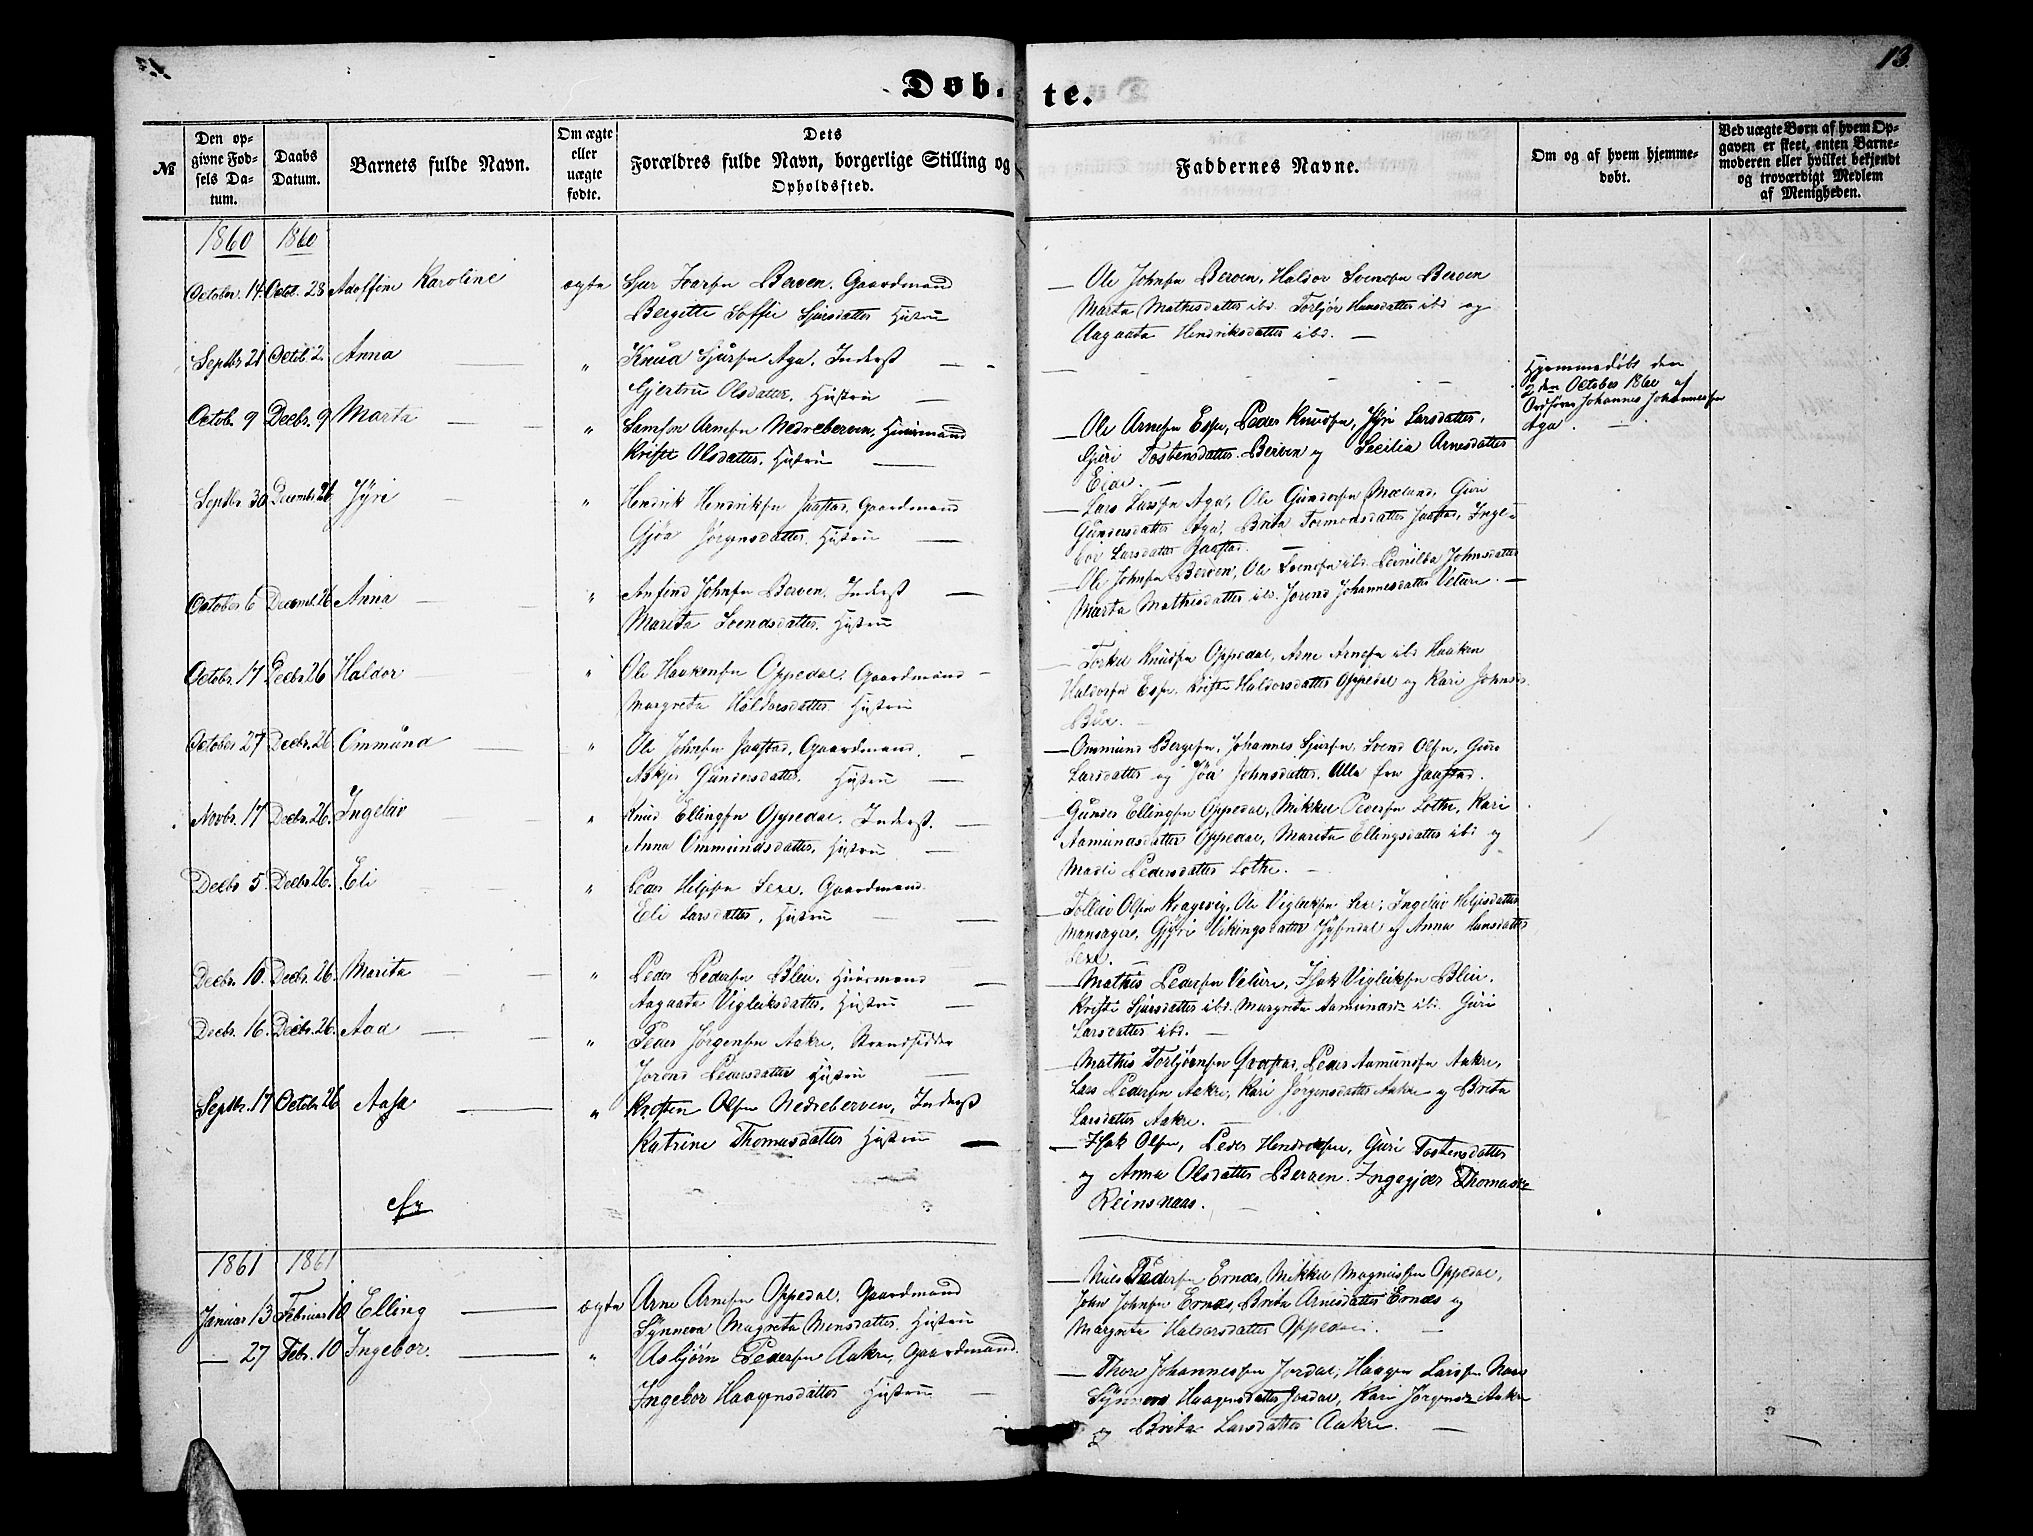 13.
Døbte.
№
Den opgivne Fødsels Datum.
Daabs Datum.
Barnets fulde Navn.
Om ægte eller uægte fødte.
Dets
Forældres fulde Navn, borgerlige Stilling og
Opholdssted.
Faddernes Navne.
Om og af hvem hjemmedøbt.
Ved uægte Børn af hvem Opgaven er skeet, enten Barnemoderen eller hvilket bekjendt og troværdigt Medlem af Menigheden.
1860 1860
October 14. Octob. 28 Adolfine Karoline ægte Sjur Ivarsen Berven. Gaardmand
Bergitte Soffie Sjursdatter Hustru
Ole Johnsen Berven, Haldor Svensen Berven
Marta Mathisdatter ibd. Torbjør Hansdatter ibd og
Aagaata Hendriksdatter ibd.
Septbr 21 Octob 2. Anna " Knud Sjursen Aga, Inderst
Gjertru Olsdatter. Hustru
Hjemmedøbt den
2den October 1860 af
Ordfører Johannes Johannessen
Aga.
Octob. 9 Decbr. 9 Marta " Samson Arnesen Nedreberven, Huusmand
Kristi Olsdatter. Hustru
Ole Arnesen Espe, Peder Knudsen, Jyri Larsdatter,
Guri Tostensdatter Berven og Secilia Arnesdatter
Eide.
Septbr 30 Decembr 26 Jyri " Hendrik Hendriksen Jaastad, Gaardmand
Gjøa Jørgensdatter. Hustru
Lars Larssen Aga, Ole Gundersen Mæland, Guri
Gundersdatter Aga, Brita Tormonsdatter Jaastad, Ingebor Larsdatter Jaastad.
October 6 Decemb. 26 Anna " Anfind Johnsen Berven, Inderst
Marita Svendsdatter. Hustru
Ole Johnsen Berven, Ole Svensen ibd. Pernilda Johnsdatter
Marta Mathisdatter ibd. Jorend Johannesdatter Velure.
Octobr. 17 Decbr 26 Haldor " Ole Haakensen Oppedal, Gaardmand
Margreta Haldorsdatter Hustru
Torkel Knudsen Oppedal, Arne Arnesen ibd Haaken
Haldorsen Espe. Kristi Haldorsdatter Oppedal og Kari Johnsd.
Bue.
October 27 Decbr. 26 Ommund " Ole Johnsen Jaastad, Gaardmand.
Askjer Gundersdatter, Hustru
Ommund Bergesen, Johannes Sjursen, Svend Olsen, Guro
Larsdatter og Jøa Johnsdatter. Alle fra Jaastad.
Novbr. 17 Decbr. 26. Ingeleiv " Knud Ellingsen Oppedal, Inderst.
Anna Ommundsdatter, Hustru
Gunder Ellingsen Oppedal, Mikkel Pedersen Lothe, Kari
Aamundsdatter Oppedal, Marita Ellingsdatter ibd og
Madli Pedersdatter Lothe.
Decbr 5 Decbr. 26. Eli " Peder Helgesen Sexe, Gaardmand
Eli Larsdatter, Hustru
Tolleiv Olsen Kragevig, Ole Vigleiksen Sexe, Ingeleiv Helgesdatter
Mansager, Gjyri Vikingsdatter Jysendal og Anna Hansdatter
Sexe.
Decbr. 10. Decbr. 26. Marita " Peder Pedersen Bleie, Huusmand
Aagaata Vigleiksdatter. Hustru
Mathis Pedersen Velure, Isak Vigleiksen Bleie.
Kristi Sjursdatter ibd. Margreta Aamundsd ibd. Guri
Larsdatter ibd.
Decbr. 16. Decbr. 26. Aad " Peder Jørgensen Aakre, Strandsidder
Jorend Pedersdatter Hustru
Mathis Torbjørnsen Qvastad, Peder Aamundsen Aakre,
Lars Pedersen Aakre, Kari Jørgensdatter Aakre og Brita
Larsdatter Aakre.
Septbr. 17 Octobr 26 Aasa " Kristen Olsen Nedreberven, Inderst
Katrine Thomasdatter Hustru
Isak Olsen, Peder Hendriksen, Guri Tostensdatter
og Anna Olsdatter Berven. Ingegjær Thomasd
Reinsnaas.
1861 1861
Januar 13 Februar 10 Elling ægte Arne Arnesen Oppedal, Gaardmand
Synneva Magreta Monsdatter. Hustru
Niels Pedersen Ernæs, Mikkel Magnussen Oppedal,
John Johnsen Ernæs, Brita Arnesdatter Ernæs og
Margreta Haldorsdatter Oppedal.
— 27 Febr. 10 Ingebor. " Asbjørn Pedersen Aakre, Gaardmand.
Ingebor Haagensdatter Hustru
Thore Johannessen Jordal, Haagen Larssen
Synneva Haagensdatter Jordal, Kari Jørgensd Aakre
og Brita Larsdatter Aakre.